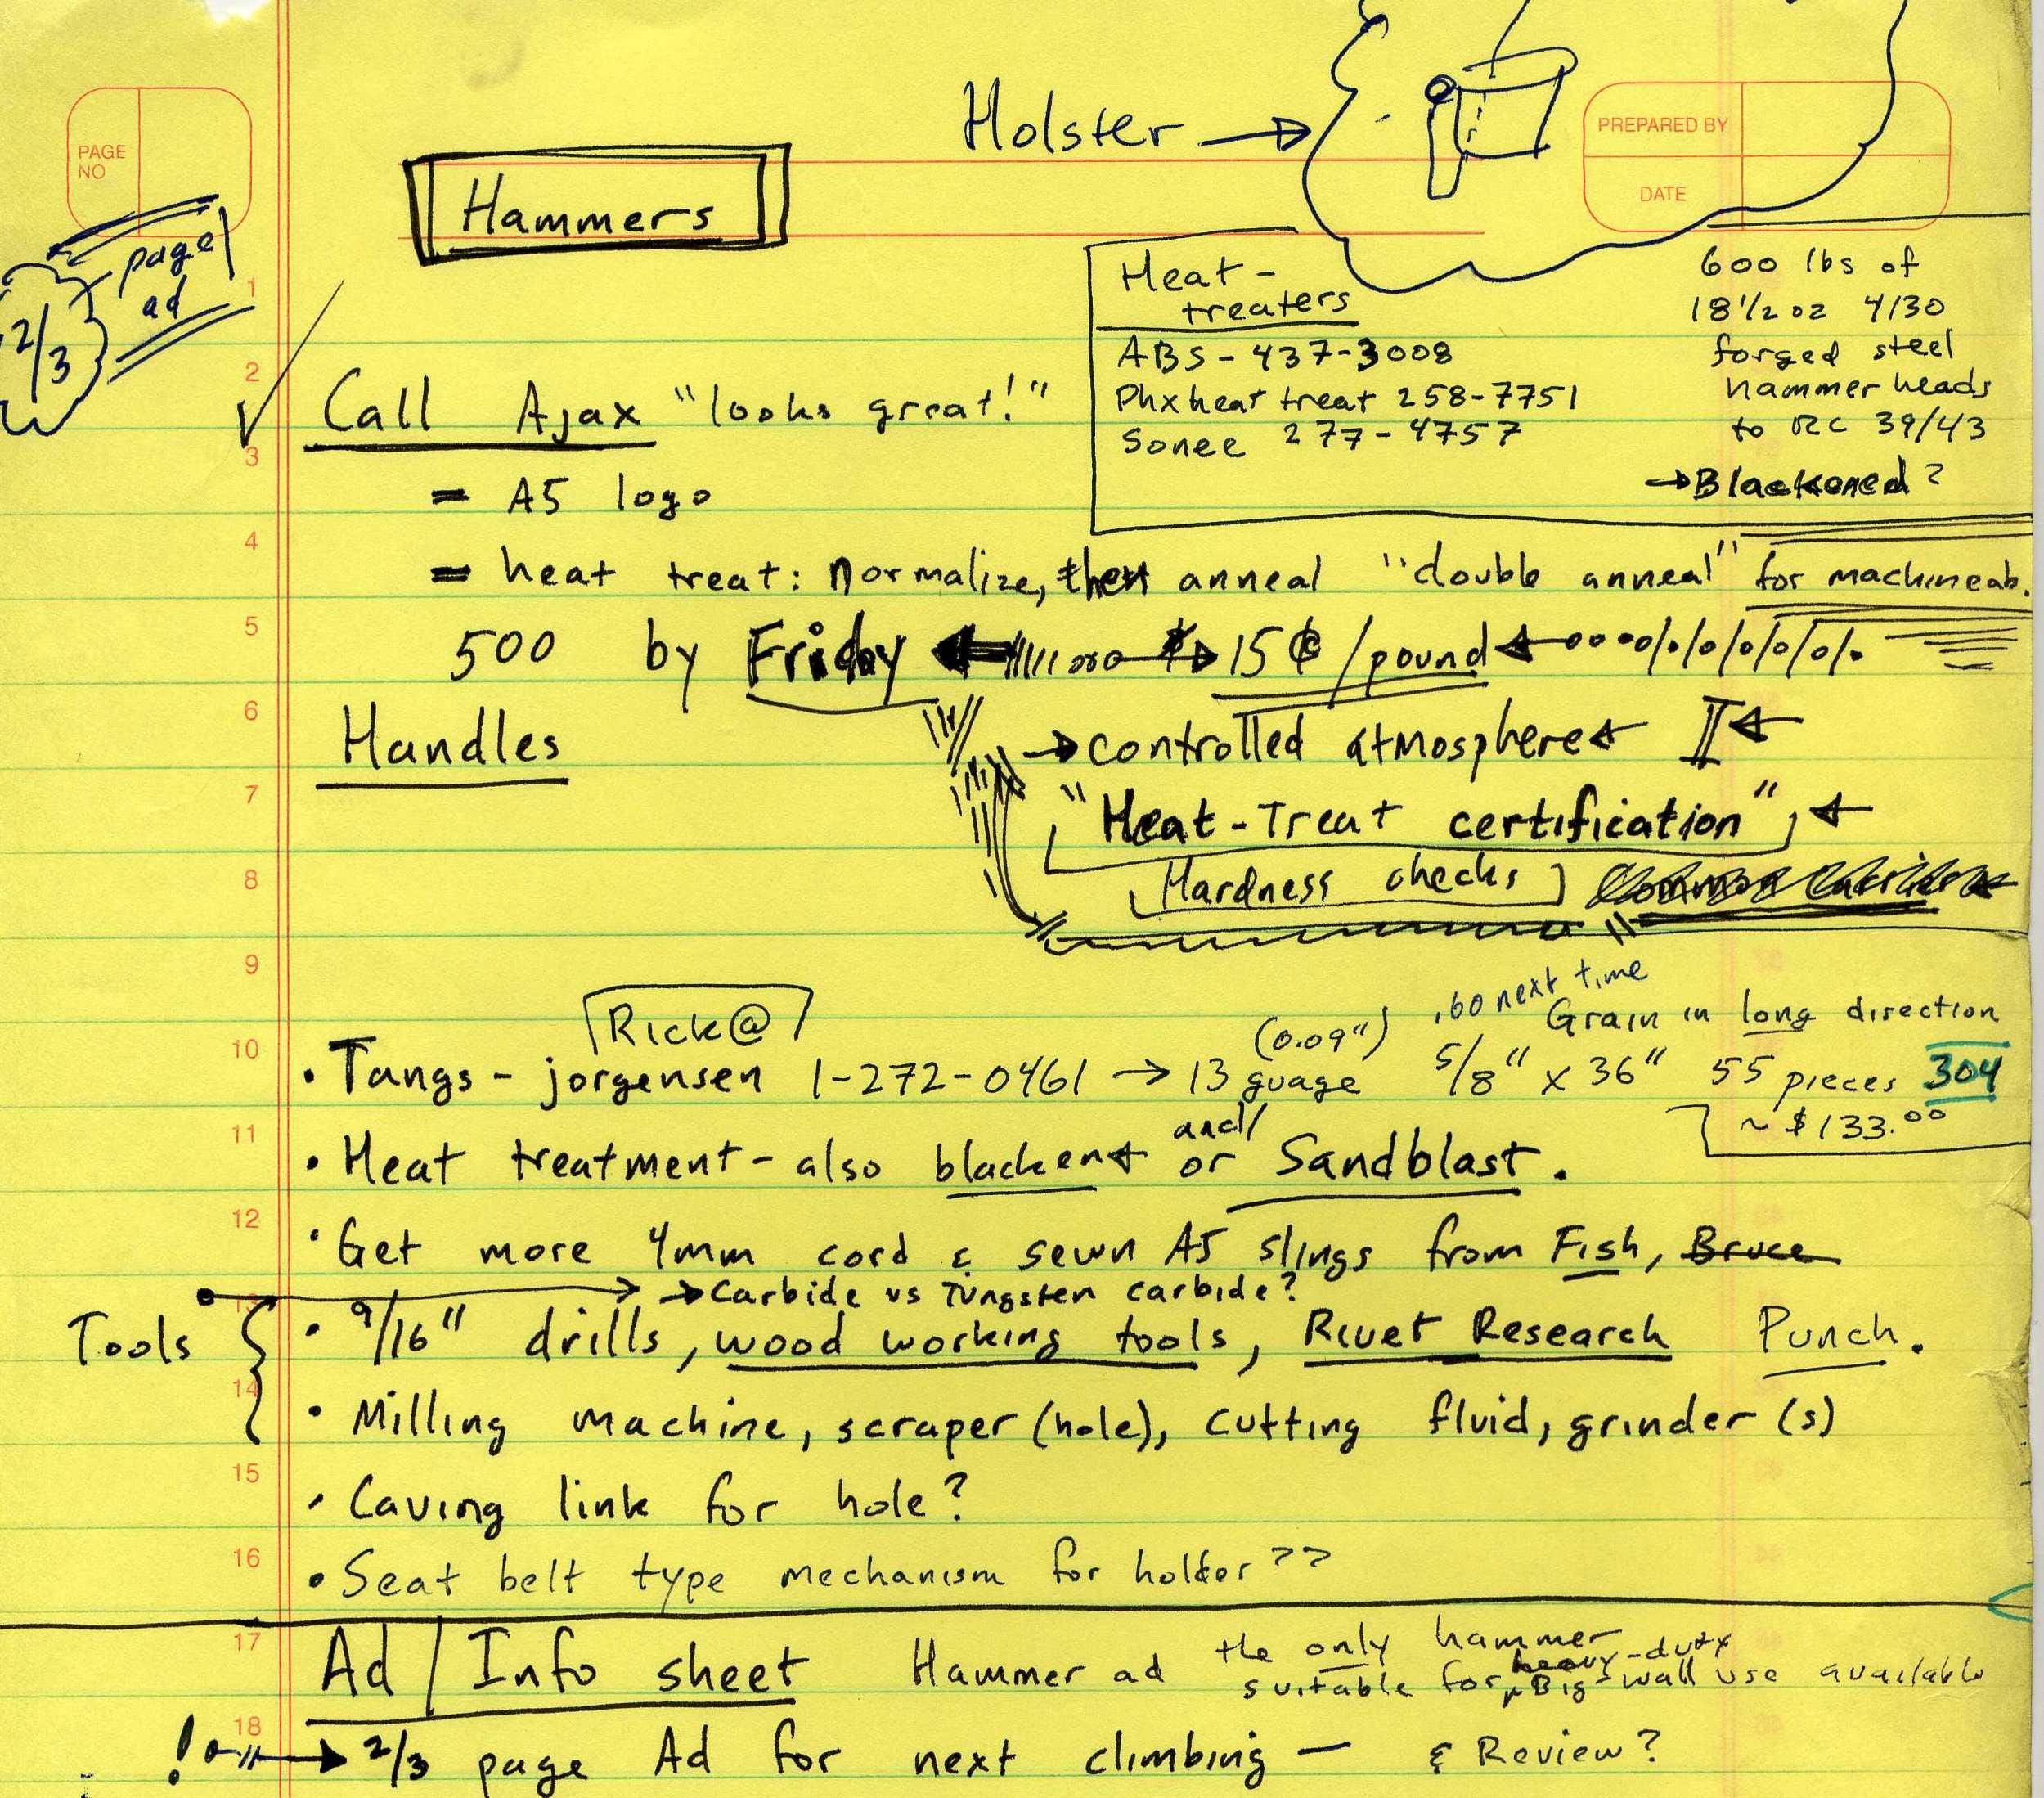 Holster →
PREPARED BY
DATE
PAGE
NO
Hammers
2/3 page
ad
Heat-
treaters
ABS - 437-3008
Phx heat treat 258-7751
Sonee 277-4757
600 lbs of
18 1/2 oz 4130
forged steel
hammer heads
to RC 39/43
→ Blackened?
1
2
Call Ajax "looks great!"
3
= A5 logo
4
= heat treat: Normalize, then anneal "double anneal" for machineab.
5
500 by Friday 15¢/pound
6
Handles
→ controlled atmosphere ←
7
"Heat-Treat certification" ←
8
Hardness checks
9
.60 next time
Rick@
(0.09") Grain in long direction
10
• Tangs - jorgensen 1-272-0461 → 13 guage 5/8" x 36" 55 pieces 304
~ $133.00
11
and/
• Heat treatment - also blacken or Sandblast.
12
• Get more 4mm cord & sewn A5 slings from Fish, Bruce
→ Carbide vs Tungsten carbide?
13
Tools • 9/16" drills, wood working tools, Rivet Research Punch.
14
• Milling machine, scraper (hole), cutting fluid, grinder (s)
15
• Caving link for hole?
16
• Seat belt type mechanism for holder??
17
Ad / Info sheet Hammer ad the only hammer
heavy-duty
suitable for Big-wall use available
18
! → 2/3 page Ad for next climbing — & Review?